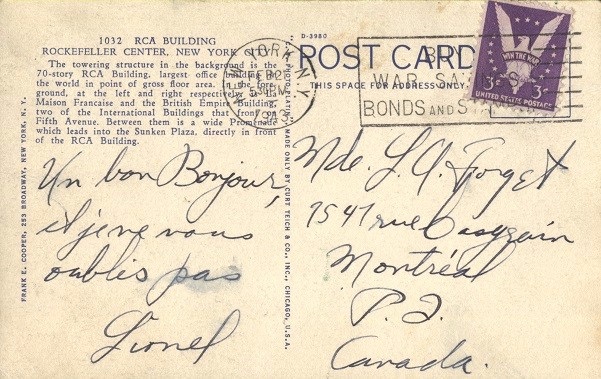 1032 RCA BUILDING
ROCKEFELLER CENTER, NEW YORK CITY
The towering structure in the background is the
70-story RCA Building, largest office building in
the world in point of gross floor area. In the fore-
ground, at the left and right respectively, is La
Maison Francaise and the British Empire Building,
two of the International Buildings that front on
Fifth Avenue. Between them is a wide Promenade
which leads into the Sunken Plaza, directly in front
of the RCA Building.
Un bon Bonjour,
et je ne vous
oublis pas
Lionel
FRANK E. COOPER, 253 BROADWAY, NEW YORK, N. Y.
MADE ONLY BY CURT TEICH & CO., INC., CHICAGO, U.S.A.
D-3980
POST CARD
THIS SPACE FOR ADDRESS ONLY
YORK, N.Y.
BUY
WAR SAVINGS
BONDS AND STAMPS
WIN THE WAR
UNITED STATES POSTAGE
3¢
Mde. L. A. Forget
7547 rue Casgrain
Montréal
P. Q.
Canada.